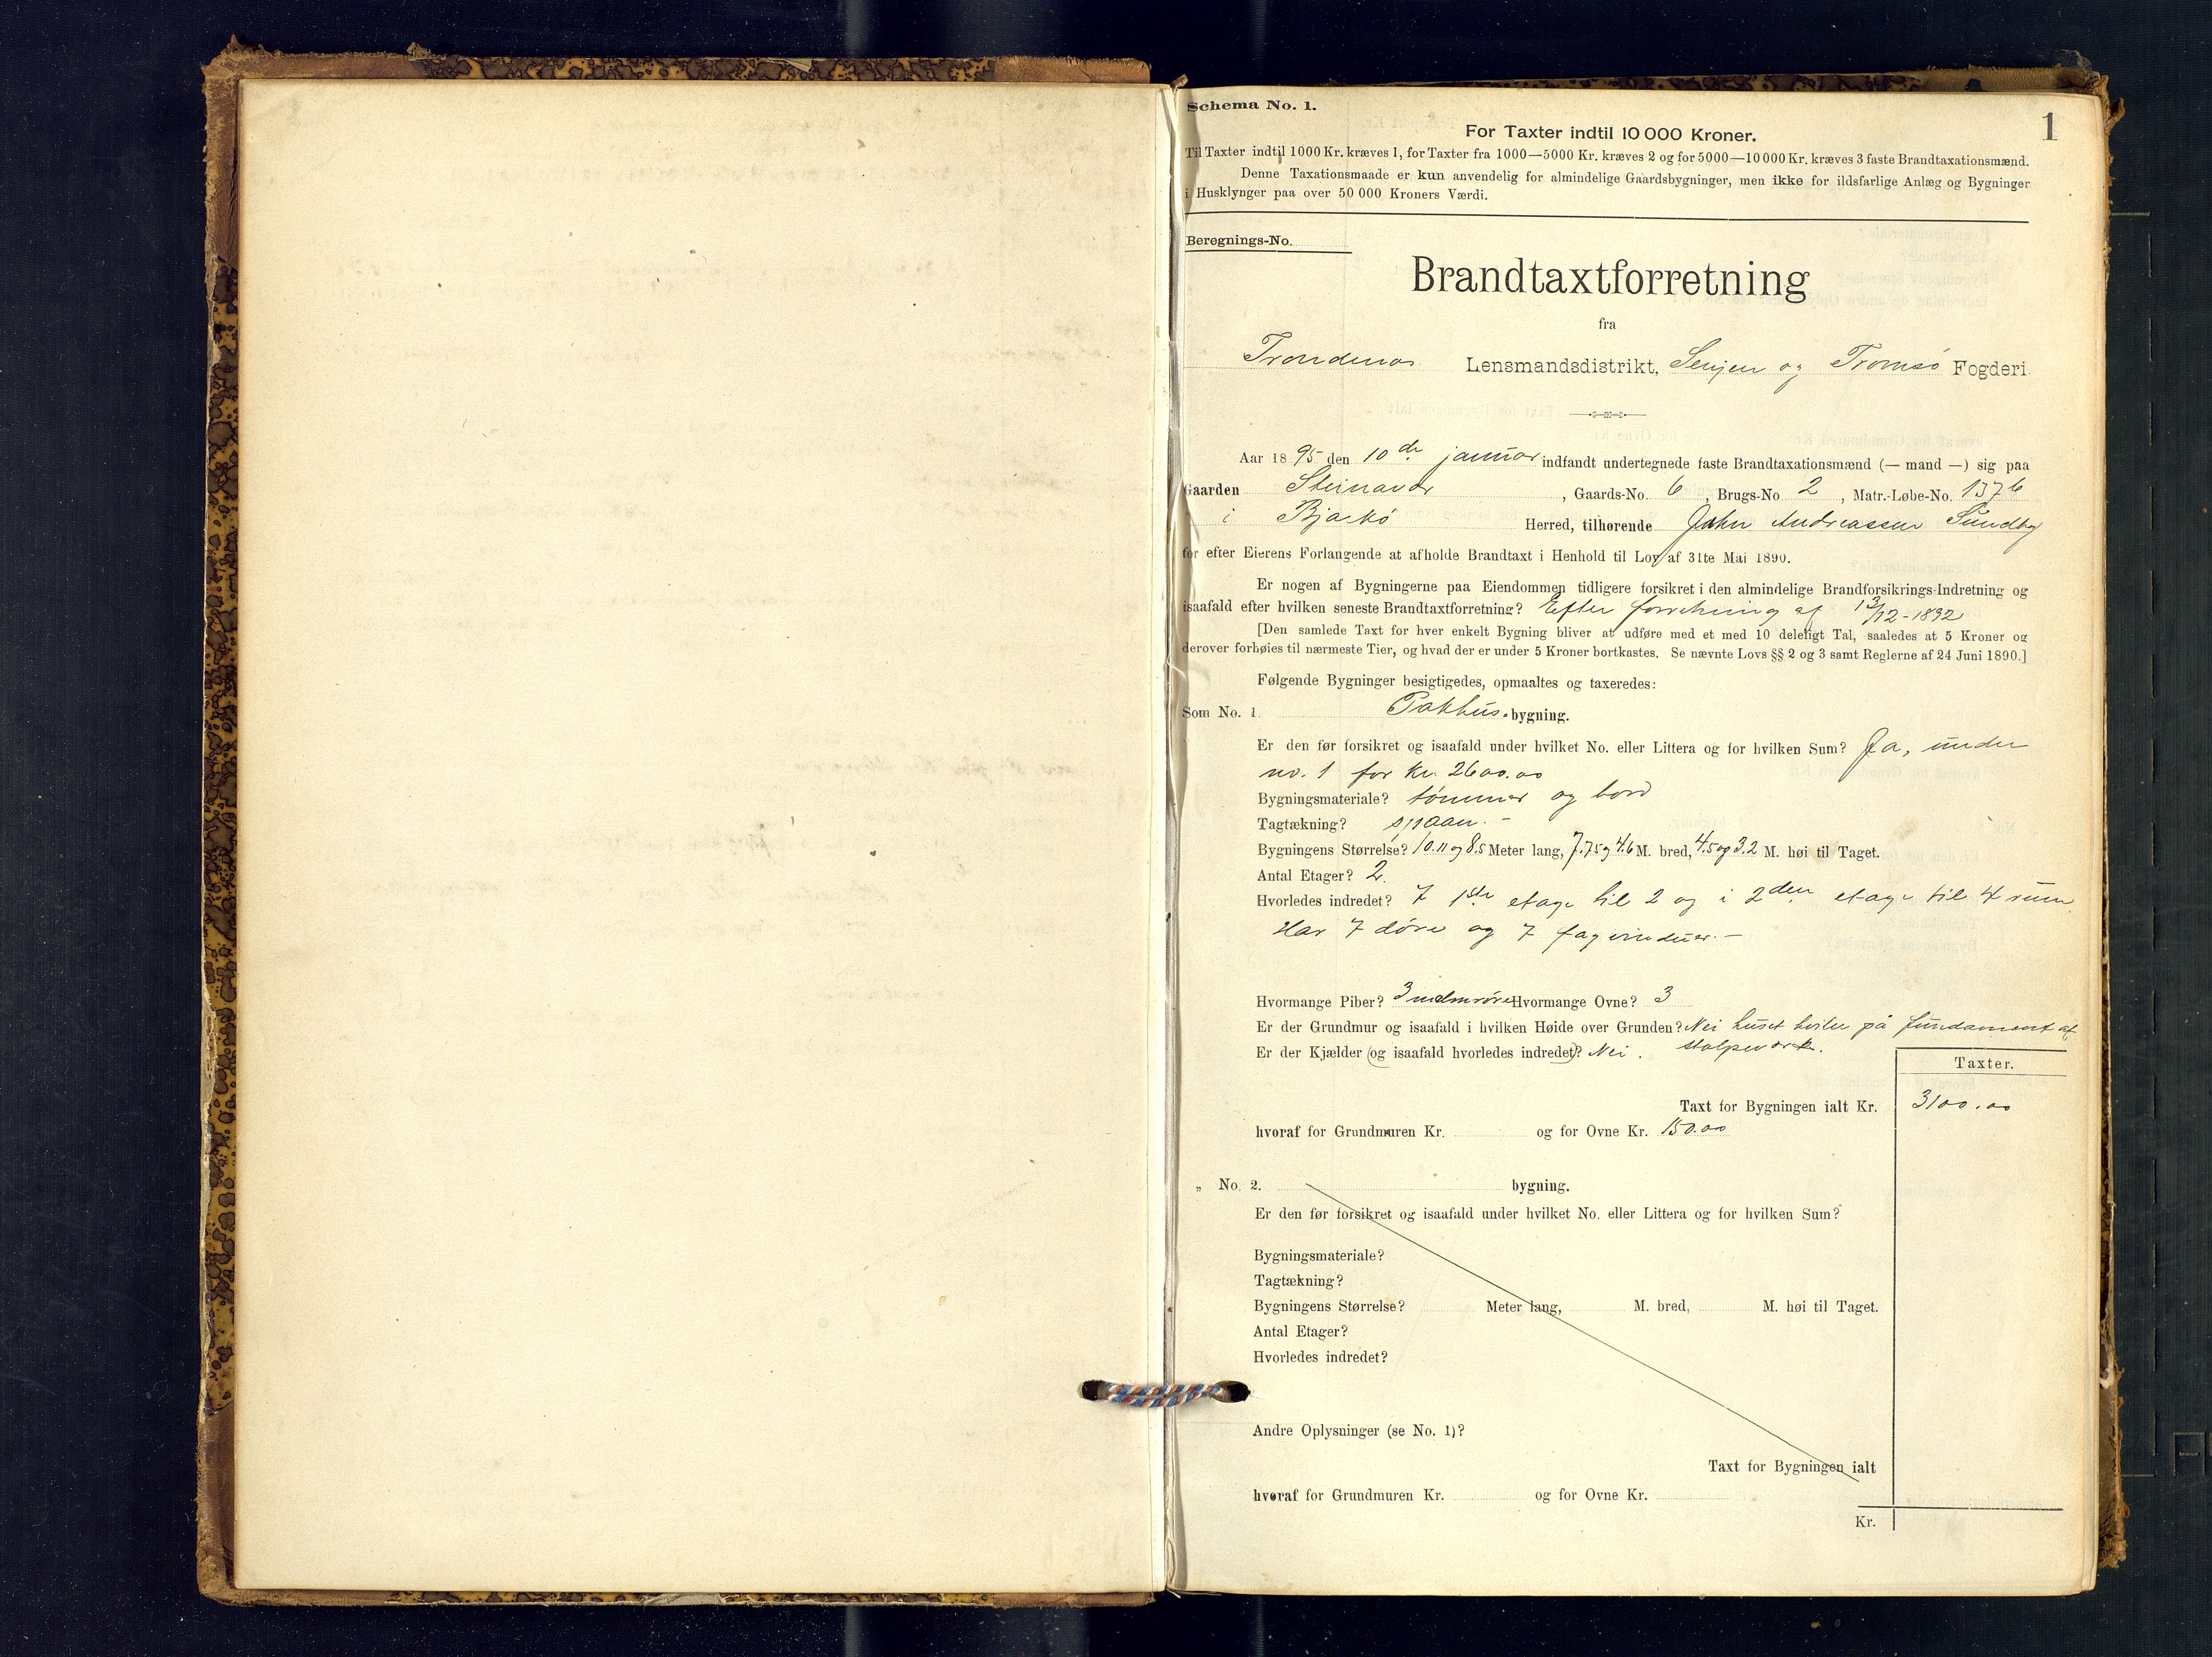 Schema No. 1.
1
For Taxter indtil 10 000 Kroner.
Til Taxter indtil 1000 Kr. kræves 1, for Taxter fra 1000—5000 Kr. kræves 2 og for 5000—10 000 Kr. kræves 3 faste Brandtaxationsmænd.
Denne Taxationsmaade er kun anvendelig for almindelige Gaardsbygninger, men ikke for ildsfarlige Anlæg og Bygninger
i Husklynger paa over 50 000 Kroners Værdi.
Beregnings-No.
Brandtaxtforretning
fra
Trondenæs Lensmandsdistrikt, Senjen og Tromsø Fogderi
Aar 1895 den 10de januar indfandt undertegnede faste Brandtaxationsmænd (— mand —) sig paa
Gaarden Steinavær, Gaards-No. 6, Brugs-No 2, Matr.-Løbe-No. 1376
i Bjarkö Herred, tilhørende John Andreassen Sundby
for efter Eierens Forlangende at afholde Brandtaxt i Henhold til Lov af 31te Mai 1890.
Er nogen af Bygningerne paa Eiendommen tidligere forsikret i den almindelige Brandforsikrings-Indretning og
isaafald efter hvilken seneste Brandtaxtforretning? Efter forretning af 13/12-1892
[Den samlede Taxt for hver enkelt Bygning bliver at udføre med et med 10 deleligt Tal, saaledes at 5 Kroner og
derover forhøies til nærmeste Tier, og hvad der er under 5 Kroner bortkastes. Se nævnte Lovs §§ 2 og 3 samt Reglerne af 24 Juni 1890.]
Følgende Bygninger besigtigedes, opmaaltes og taxeredes:
Som No. 1. Pakhus-bygning.
Er den før forsikret og isaafald under hvilket No. eller Littera og for hvilken Sum? Ja, under
no. 1 for kr. 2600.00
Bygningsmateriale? tömmer og bord
Tagtækning? spaan. -
Bygningens Størrelse? 10.11 og 8.5 Meter lang, 7.75 og 4.6 M. bred, 4.5 og 3.2 M. høi til Taget.
Antal Etager? 2.
Hvorledes indredet? I 1ste etage til 2 og i 2den etage til 4 rum.
Har 7 döre og 7 fag vinduer. -
Hvormange Piber? 3 Hvormange Ovne? 3
Er der Grundmur og isaafald i hvilken Høide over Grunden? Nei huset hviler på fundament af
Er der Kjælder (og isaafald hvorledes indredet)? Nei. stolpeværk.
Taxter.
Taxt for Bygningen ialt Kr. 3100.00
hvoraf for Grundmuren Kr. og for Ovne Kr. 150.00
„ No. 2. bygning.
Er den før forsikret og isaafald under hvilket No. eller Littera og for hvilken Sum?
Bygningsmateriale?
Tagtækning?
Bygningens Størrelse? Meter lang, M. bred, M. høi til Taget.
Antal Etager?
Hvorledes indredet?
Andre Oplysninger (se No. 1)?
Taxt for Bygningen ialt
hvoraf for Grundmuren Kr. og for Ovne Kr.
Kr.